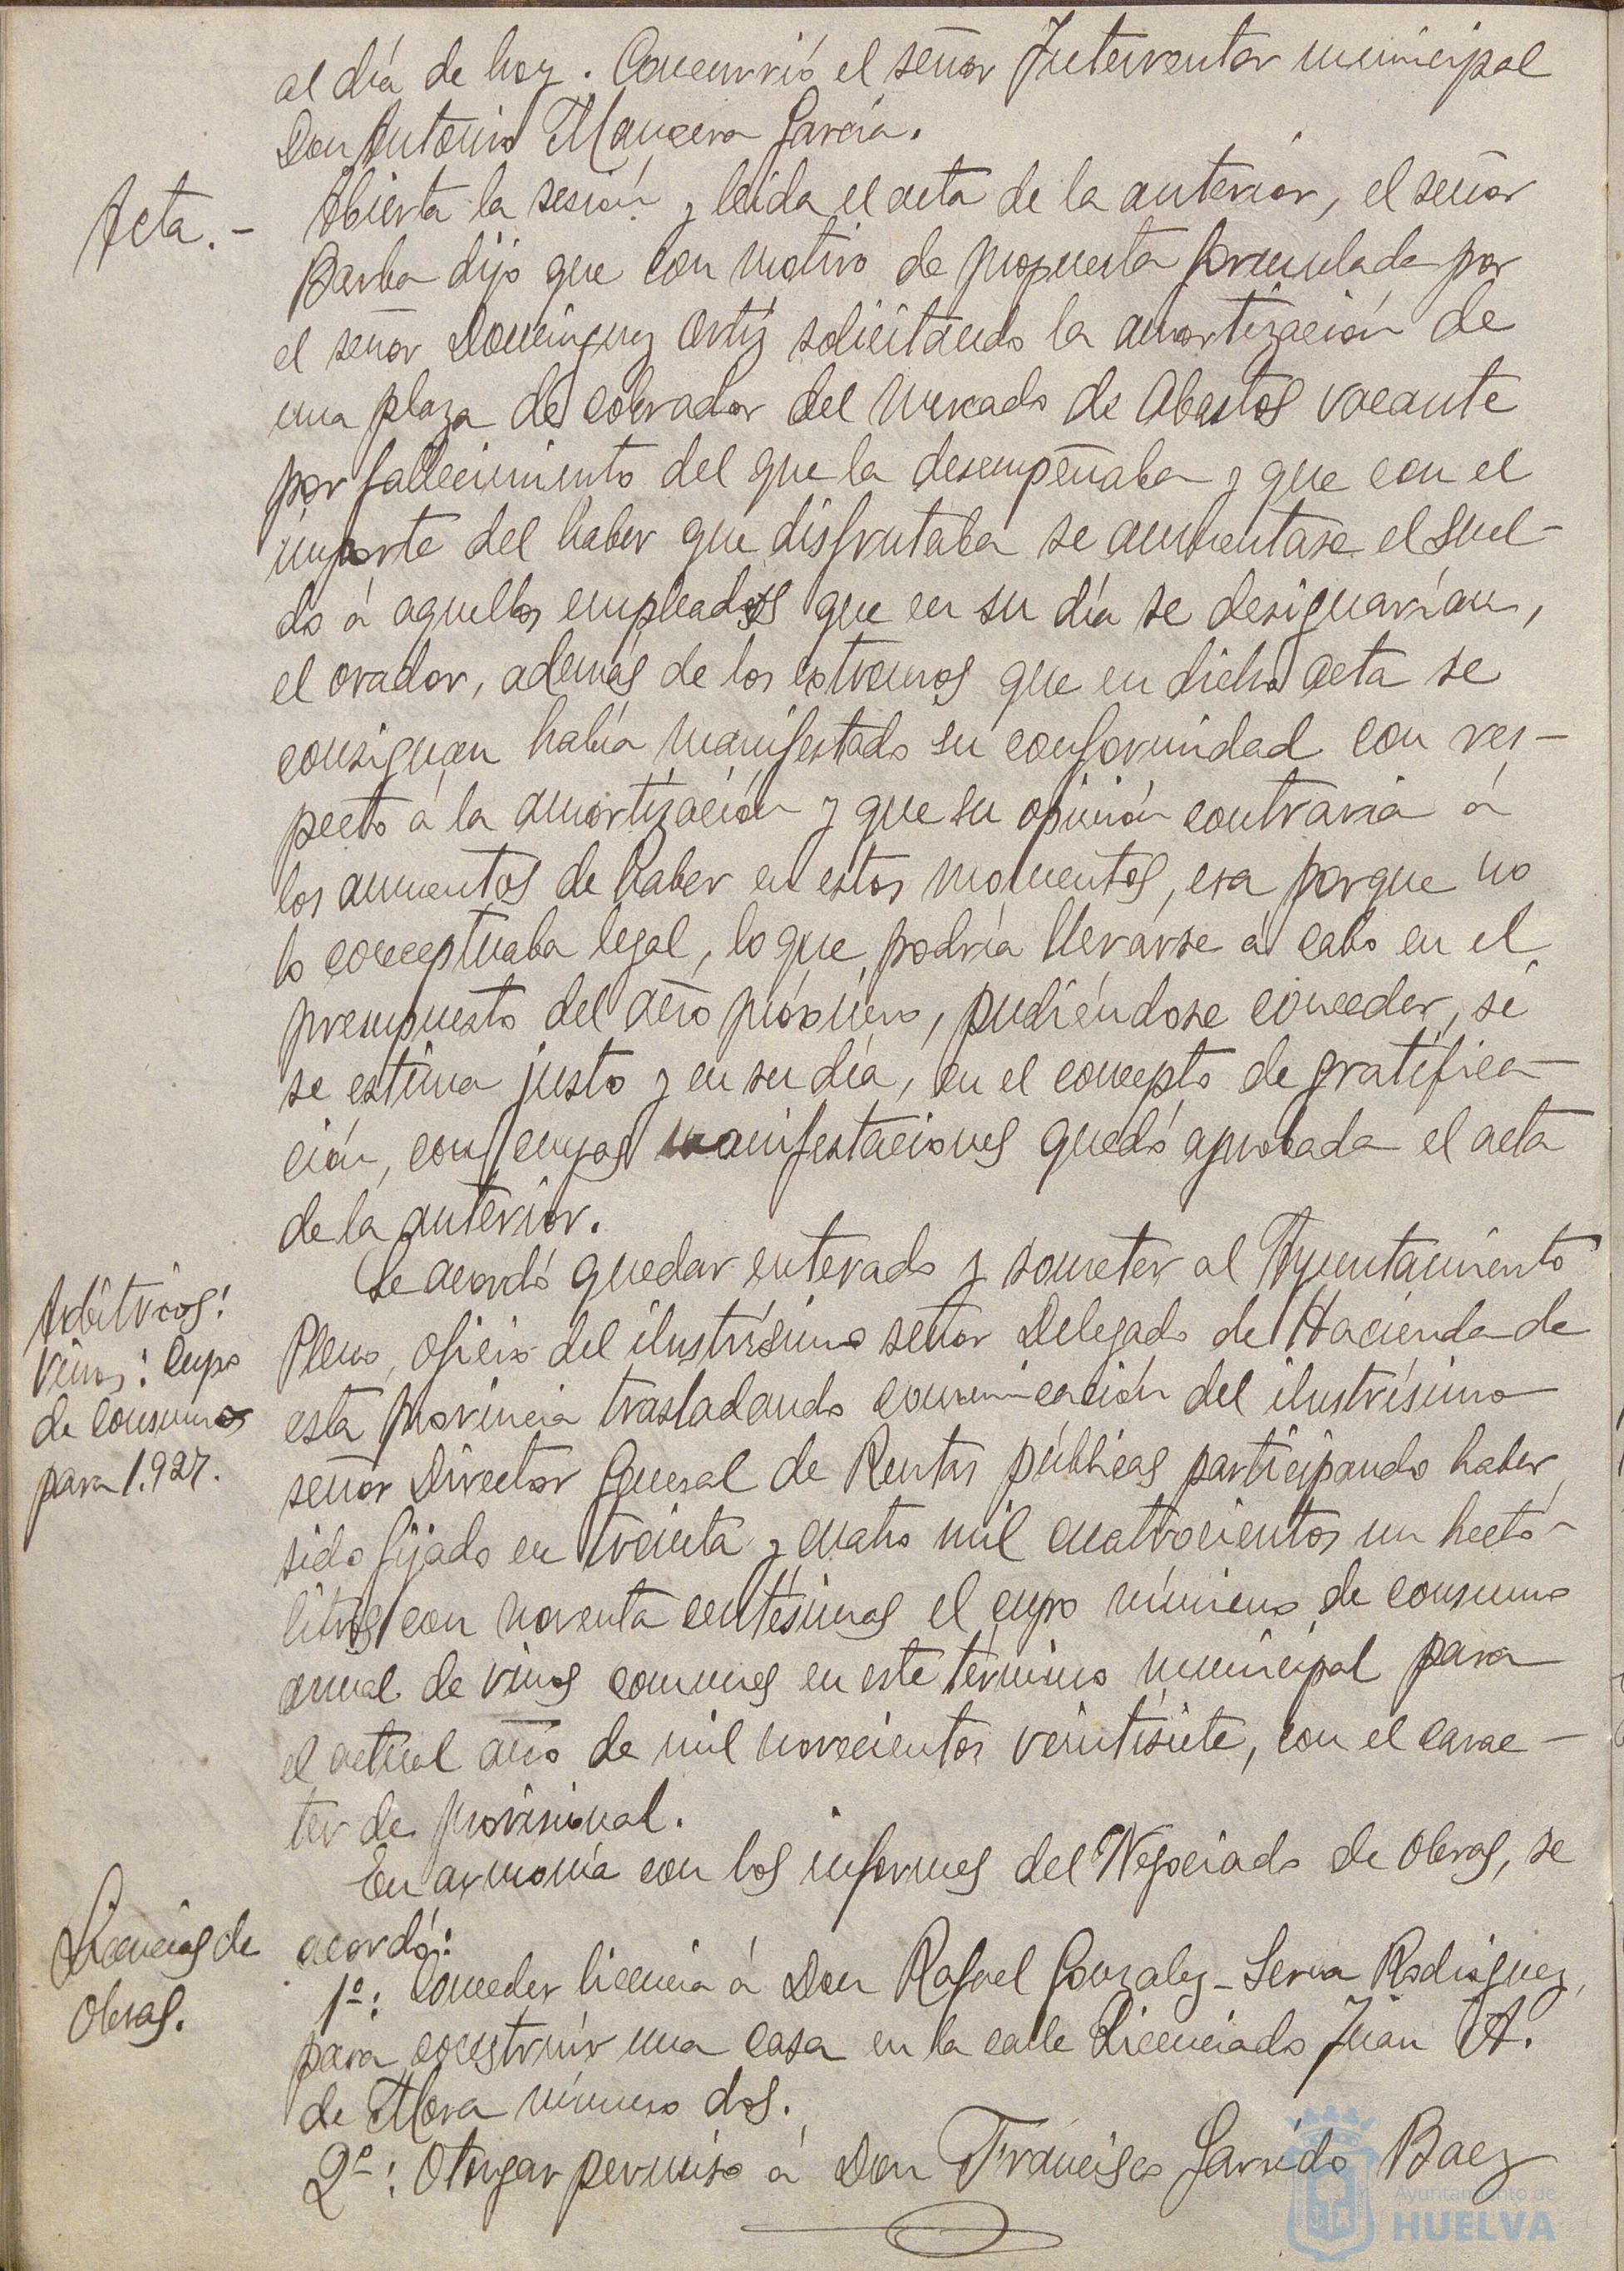 al día de hoy. Concurrió el señor Interventor municipal
Don Antonio Mancera García.
Acta.-
Abierta la sesión y leida el acta de la anterior, el señor
Barba dijo que con motivo de propuesta formulada por
el señor Dominguez Ortiz solicitando la amortización de
una plaza de cobrador del Mercado de Abastos vacante
por fallecimiento del que la desempeñaba y que con el
importe del haber que disfrutaba se aumentase el suel-
do á aquellos empleados que en su día se designarían,
el orador, además de los extremos que en dicha acta se
consignan había manifestado su conformidad con res-
pecto á la amortización y que su opinión contraria á
los aumentos de haber en estos momentos, era porque no
lo conceptuaba legal, lo que podría llevarse á cabo en el
presupuesto del año próximo, pudiéndose conceder, si
se estima justo y en su día, en el concepto de gratifica-
ción, con cuyas manifestaciones quedó aprobada el acta
de la anterior.
Arbitrios:
Vinos: Cupo
de consumo
para 1.927.
Se acordó quedar enterado y someter al Ayuntamiento
Pleno, oficio del ilustrísimo señor Delegado de Hacienda de
esta provincia trasladando comunicación del ilustrísimo
señor Director General de Rentas públicas participando haber
sido fijado en treinta y cuatro mil cuatrocientos un hectó-
litros con noventa centésimas el cupo mínimo de consumo
anual de vinos comunes en este término municipal para
el actual año de mil novecientos veintisiete, con el carac-
ter de provisional.
Licencias de
Obras.
En armonía con los informes del Negociado de Obras, se
acordó:
1º: Conceder licencia á Don Rafael Gonzalez-Serna Rodriguez,
para construir una casa en la calle Licenciado Juan A.
de Mora número dos.
2º: Otorgar permiso á Don Francisco Garrido Baez
Ayuntamiento de
HUELVA